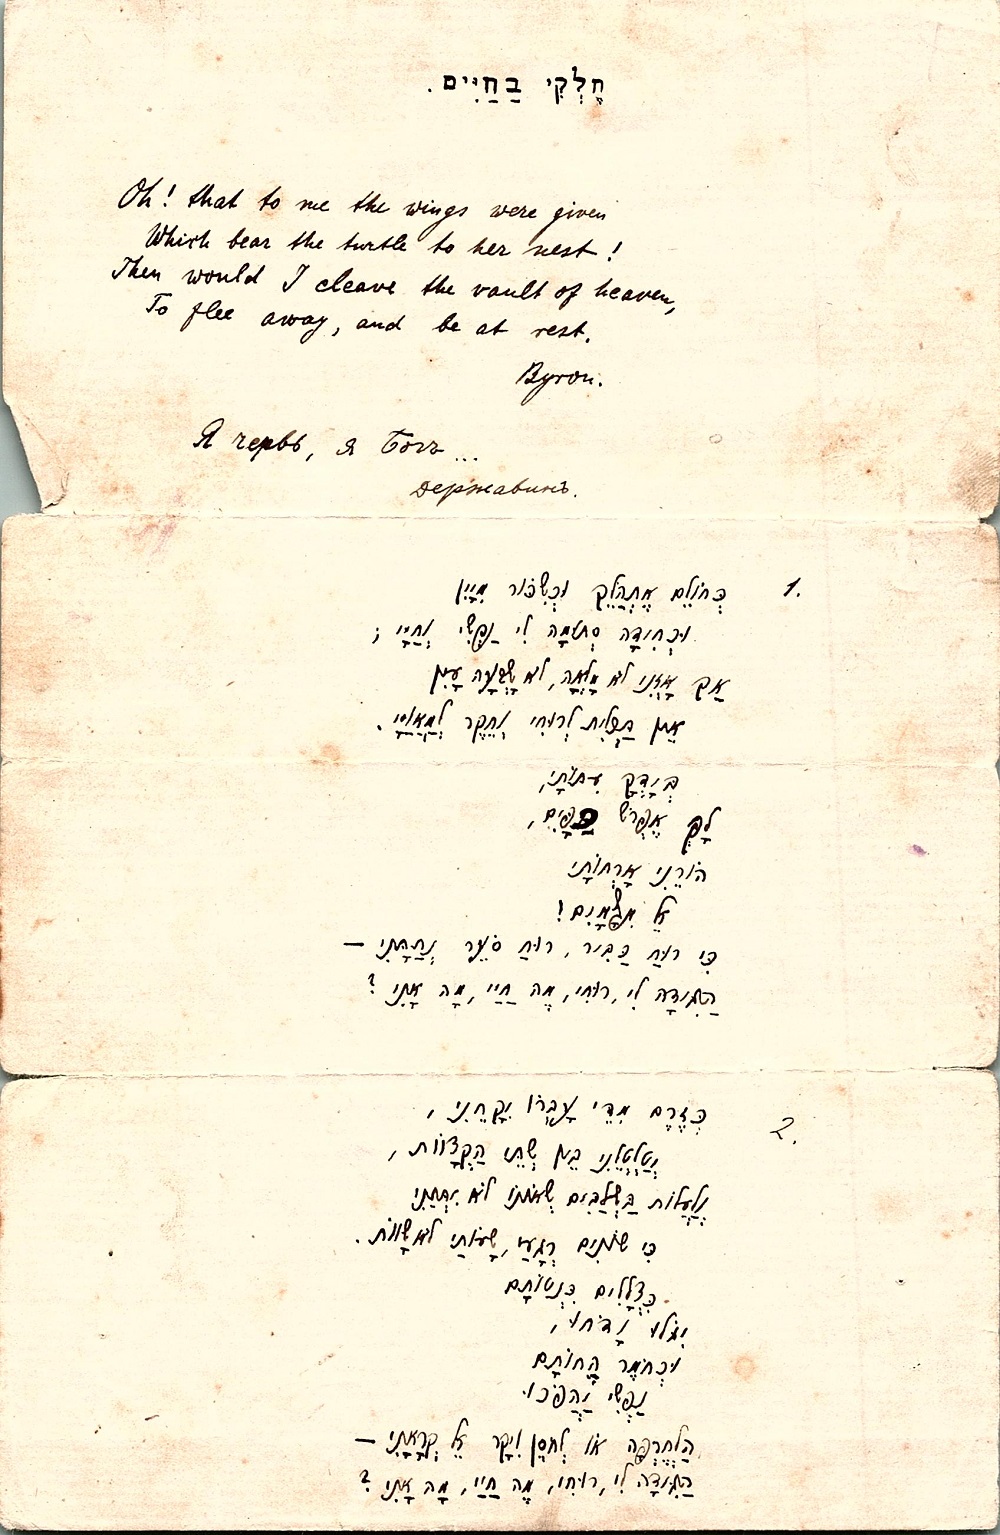 חֶלְקִי בַחַיִּים.
Oh! that to me the wings were given
Which bear the turtle to her nest!
Then would I cleave the vault of heaven,
To flee away, and be at rest.
Byron.
Я червь, я Богъ...
Державинъ.
1.
כְּחוֹלֵם אֶתְהַלֵּךְ וּכְשִׁכּוֹר מִיָּיִן
וּכְחִידָה סְתֻמָה לִי נַפְשִׁי וְחַיָּי;
אַךְ אָזְנִי לֹא מָלְאָה, לֹא שָׂבְעָה עָיִן
אֵין תַּכְלִית לְרוּחִי וְחֵקֶר לְמַאֲוַיָּי.
בְּיָדְךָ עִתּוֹתָי,
לָךְ אֶפְרֹשׂ כַּפָּיִם,
הוֹרֵנִי אָרְחוֹתָי
אֵל מִמְּרוֹמִים!
כִּי רוּחַ כַּבִּיר, רוּחַ סֹעֵר נְתַתָּנִי —
הַגִּידָה לִי, רוּחִי, מֶה חַיַּי, מָה אָנִי?
2.
כְּזֶרֶם מִדֵּי עָבְרוֹ יִקָּחֵנִי,
וִיטַלְטְלֵנִי בֵּין שְׁתֵּי הַקְּצָווֹת,
וְלַעֲלוֹת בַּשְׁלַבִּים
כִּי שׁוֹנִים רְגָעַי, שְׁעוֹתַי לֹא שָׁווֹת.
כִּצְלָלִים כִּנְטוֹתָם
וּכְחֹמֶר הַחוֹתָם
נַפְשִׁי
הַלְחֶרְפָּה אוֹ לְחֹסֶן וִיקָר אֵל קְרָאתָנִי —
הַגִּידָה לִי, רוּחִי, מֶה חַיַּי, מָה אָנִי?